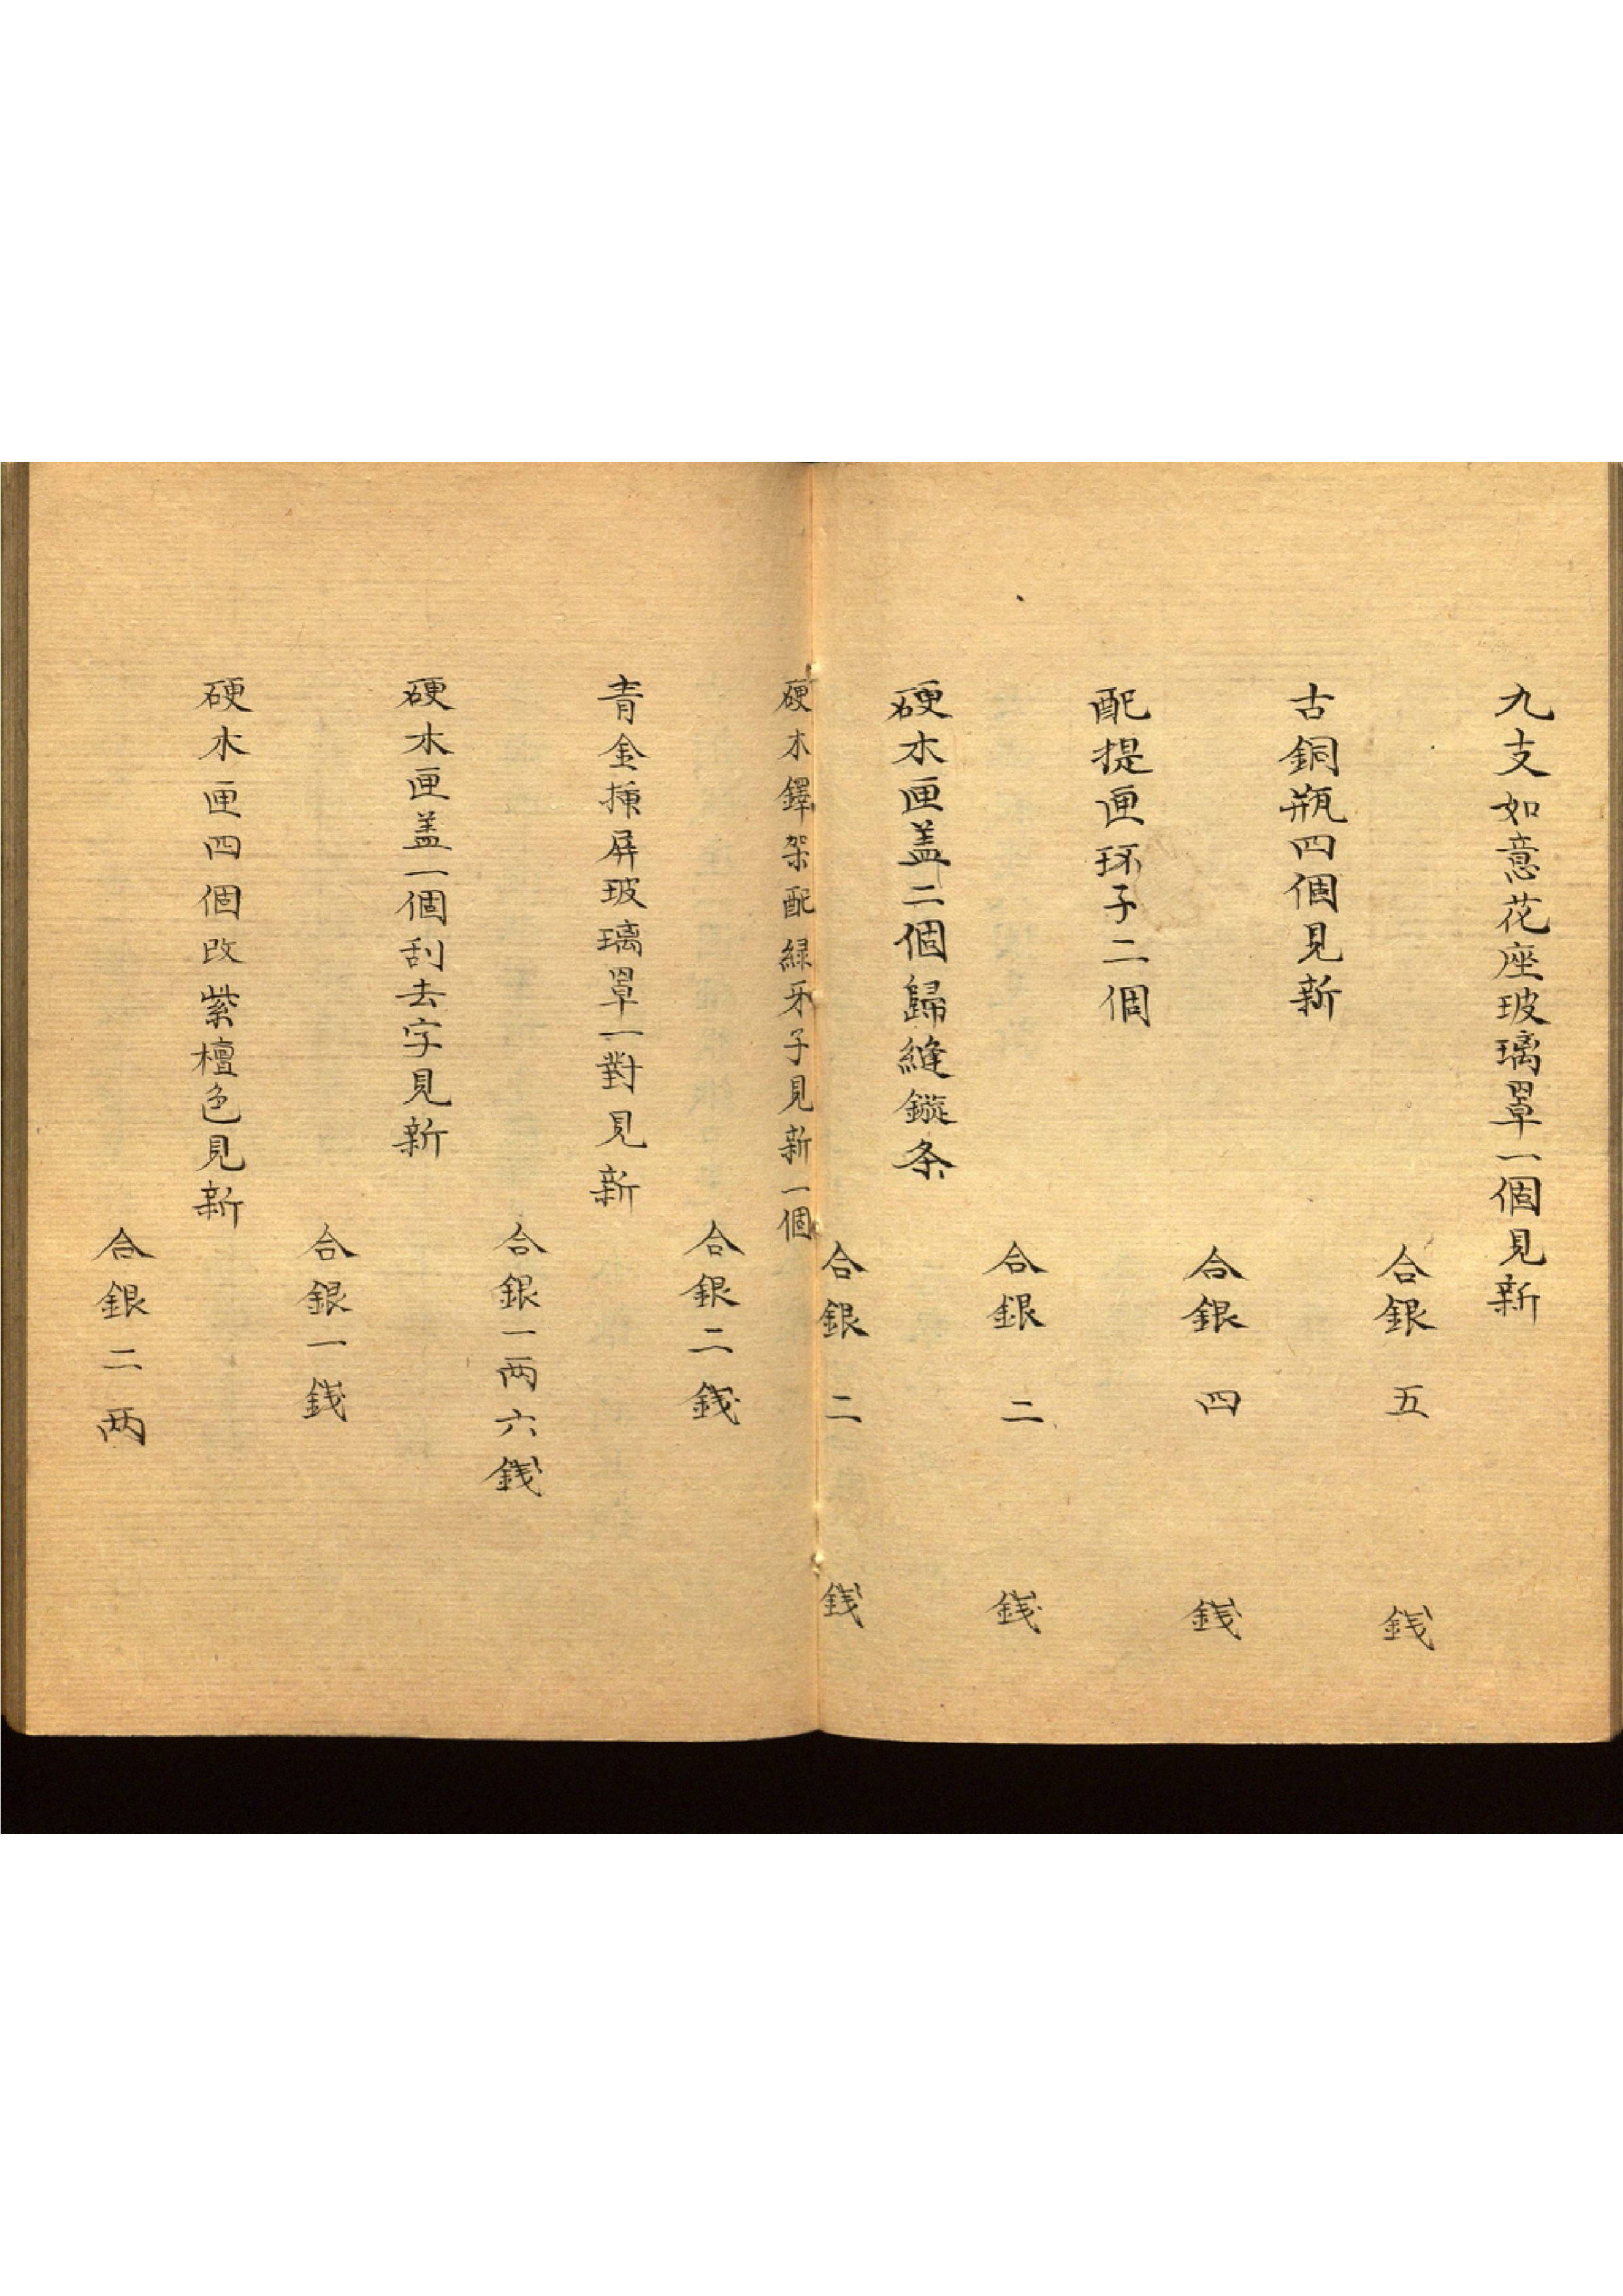 九支如意花座玻璃罩一個見新
合銀五錢
古銅瓶四個見新
合銀四錢
配提匣环子二個
合銀二錢
硬木匣盖二個歸縫鏇条
合銀二錢
硬木鐸架配綠牙子見新一個
合銀二錢
青金揷屏玻璃罩一對見新
合銀一两六錢
硬木匣盖一個刮去字見新
合銀一錢
硬木匣四個改紫檀色見新
合銀二两